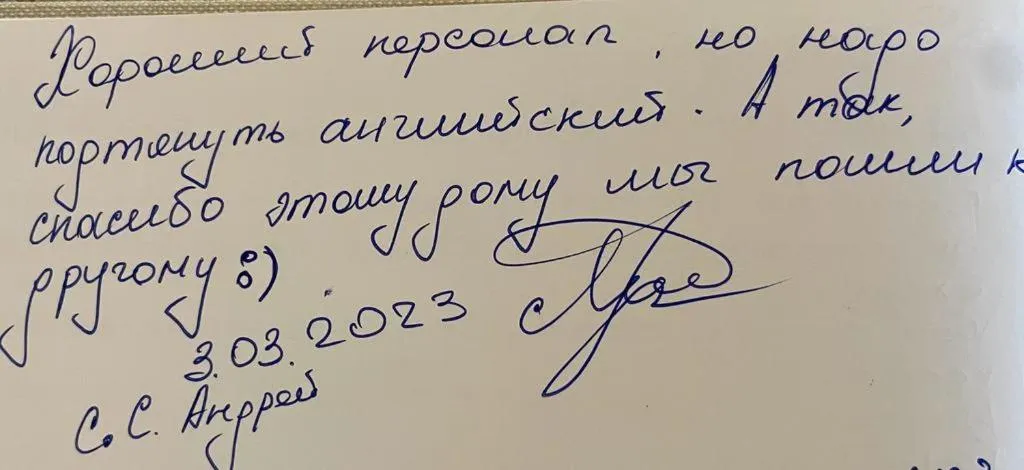 Хороший персонал, но надо
подтянуть английский. А так,
спасибо этому дому мы пошли к
другому :)
3.03.2023
С. С. Андрей